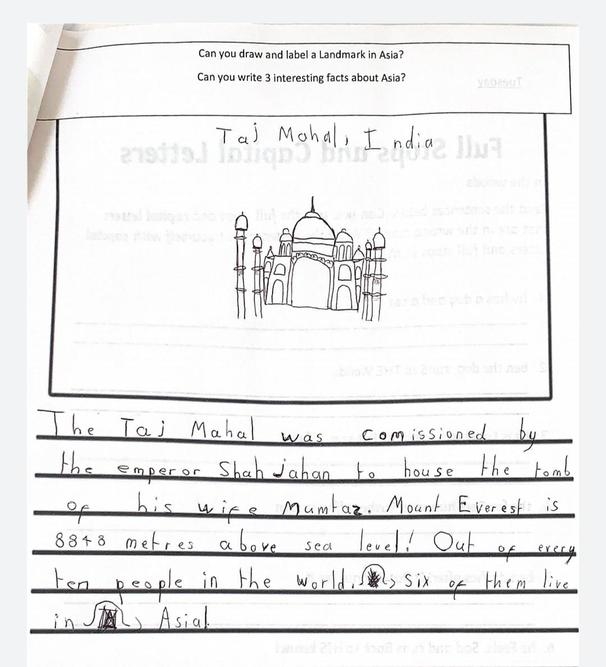 Can you draw and label a Landmark in Asia?
Can you write 3 interesting facts about Asia?
Tuesday
Taj Mahal, India
Full Stops and Capital Letters
The Taj Mahal was comissioned by
the emperor Shah Jahan to house the tomb
of his wife Mumtaz. Mount Everest is
8848 metres above sea level! Out of every
ten people in the world, six of them live
in Asia!